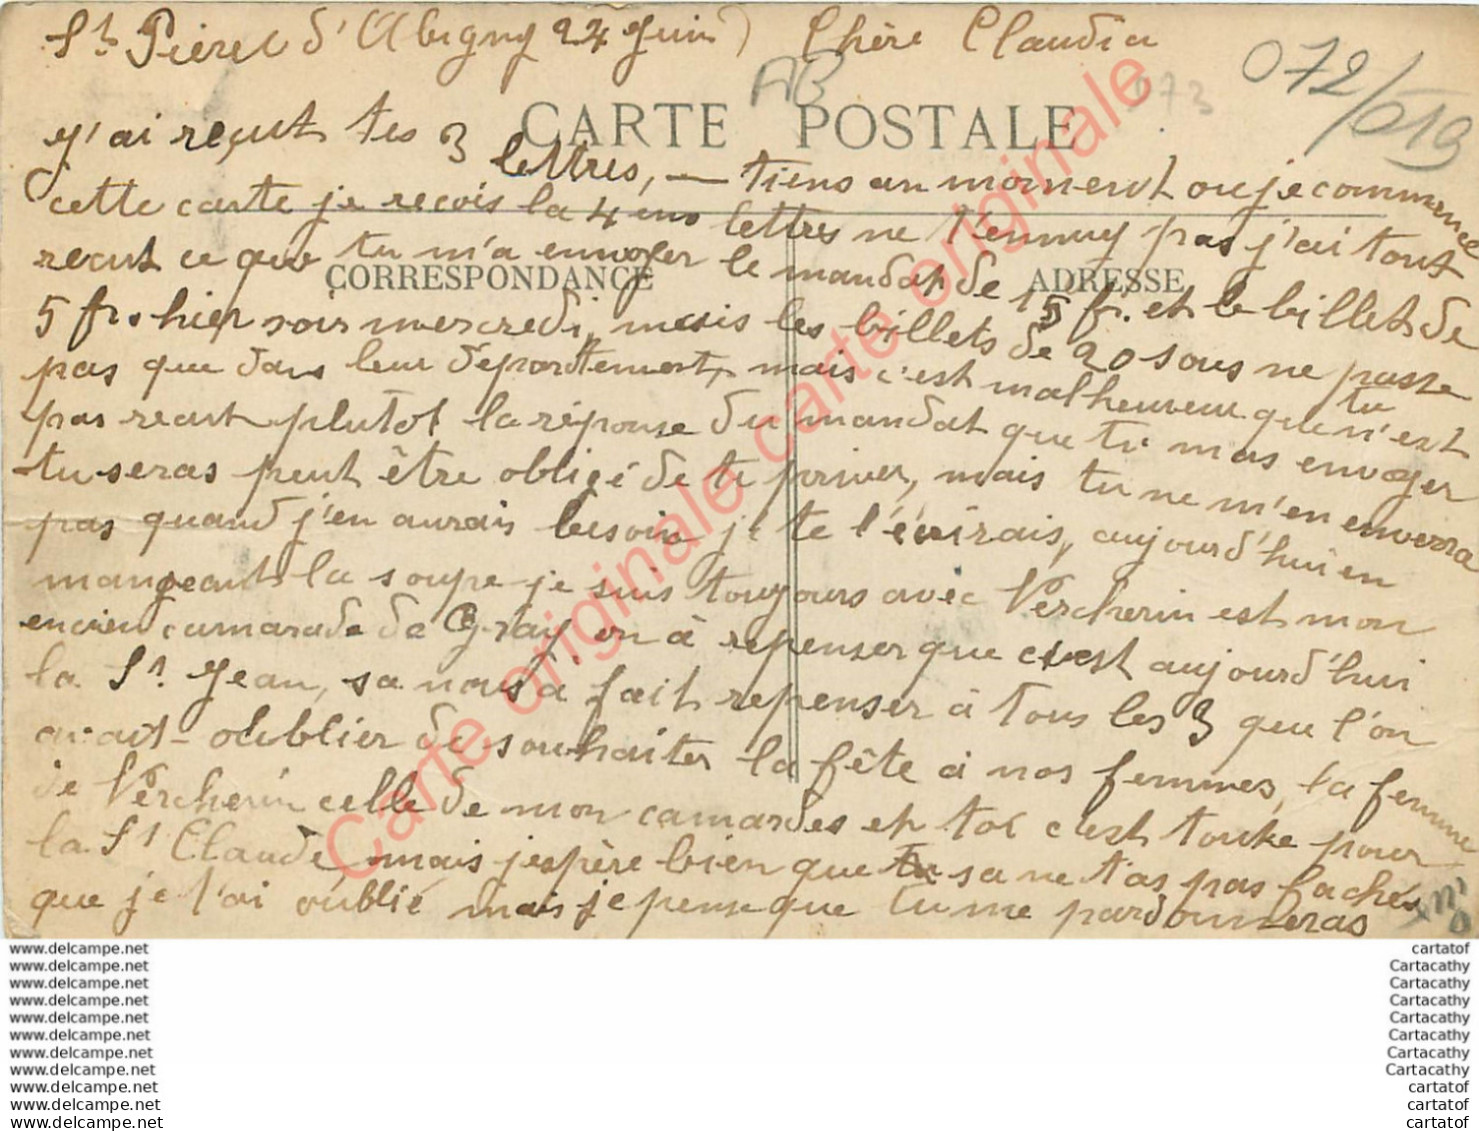 St Pierre d'Albigny 24 Juin Chère Claudia
072/019
AB
073
CARTE POSTALE
J'ai reçut tes 3 lettres, — tiens au moment ou je commence
cette carte je reçois la 4 ems lettres ne t'ennuy pas j'ai tout
recut ce que tu m'a envoyer le mandat de 15 fr. et le billet de
CORRESPONDANCE
ADRESSE
5 fr. hier soir mercredi, mais les billets de 20 sous ne passe
pas que dans leur département, mais c'est malheureu que tu n'est
pas recut plutot la réponse du mandat que tu mas envoyer
tu seras peut être obligé de te priver, mais tu ne m'en enverra
pas quand j'en aurais besoin je te l'écrirais, aujourd'hui en
mangeant la soupe je suis toujours avec Vercherin est mon
encien camarade de Gray on à repenser que c'est aujourd'hui
la St. Jean, sa nous à fait repenser à tous les 3 que l'on
avait oublier de souhaiter la fête à nos femmes, la femme
de Vercherin celle de mon camardes et toi c'est toute pour
la St Claude mais j'espère bien que tu sa ne t'as pas fachés
que je t'ai oublié mais je pense que tu me pardonneras
Carte originale carte originale carte originale
www.delcampe.net
www.delcampe.net
www.delcampe.net
www.delcampe.net
www.delcampe.net
www.delcampe.net
www.delcampe.net
www.delcampe.net
www.delcampe.net
www.delcampe.net
www.delcampe.net
cartatof
Cartacathy
Cartacathy
Cartacathy
Cartacathy
Cartacathy
Cartacathy
Cartacathy
cartatof
cartatof
cartatof